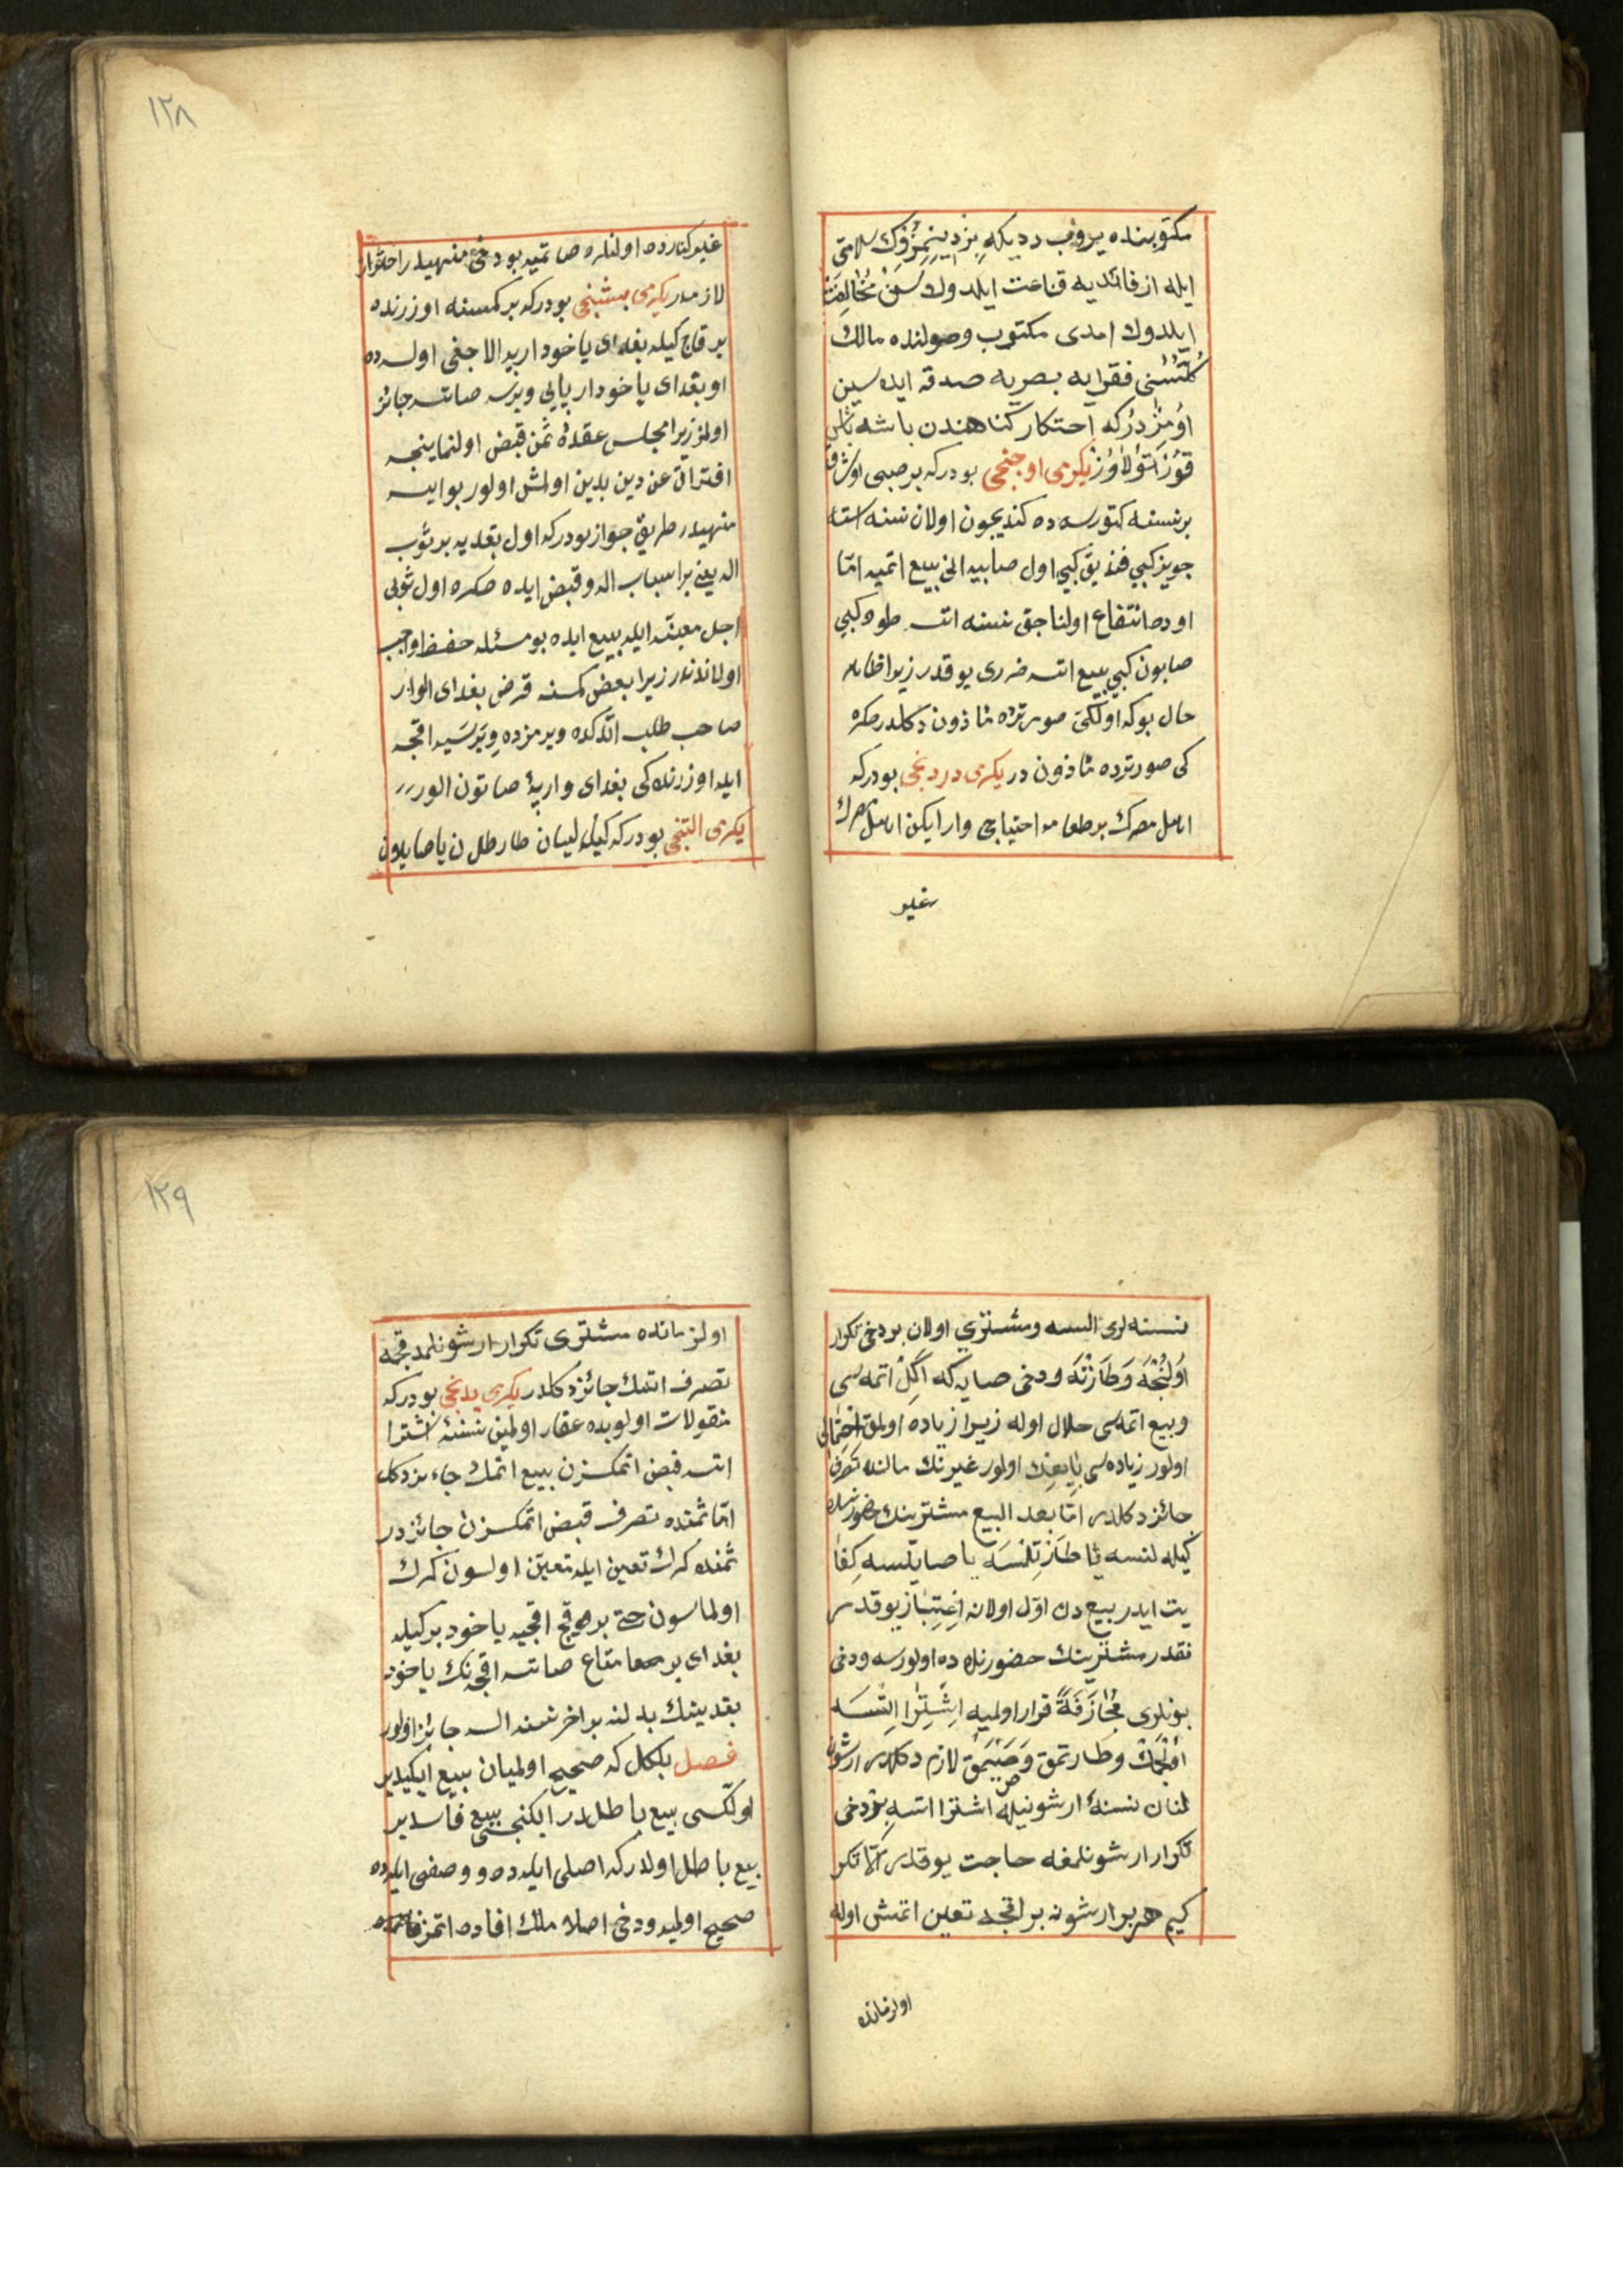 مكتوبنده يزوب دديكه بز دينمزك سلامتى
ايله از فائديه قناعت ايلدوك سن مخالفت
ايلدوك امدى مكتوب وصولنده مالك
كلتسنى فقرايه بصريه صدقه ايده سين
اومزدركه احتكار كناهندن باشه باش
قورتولاوز يكرمى اوجنجى بودركه بر صبى
بر نسنه كتورسه ده كنديجون اولان نسنه استه
جويز كبى فندق كبى اول صابيه انى بيع اتميه امّا
اوده انتفاع اولناجق نسنه استه طوز كبى
صابون كبى بيع اتسه ضررى يوقدر زيرا ظاهر
حال بوكه اولكى صورتده مأذون دكلدر صكره
كى صورتده مأذون در يكرمى دردنجى بودركه
اهل مصرك بر طعامه احتياجى وار ايكن اهل مصرك
غيرو
١٢٨
غيرو كنارده اولنلره صاتميه بو دخى منهيدر احتراز
لازمدر يكرمى بشنجى بودركه بر كمسنه اوزرنده
بر قاج كيله بغداى ياخود اربه الاجغى اولسه ده
او بغداى ياخود اربايى ويرسه صاتسه جائز
اولمز زيرا مجلس عقدده ثمن قبض اولنماينجه
افتراق عن دين بدين اولمش اولور بو ايسه
منهيدر طريق جواز بودركه اول بغديه بر ثوب
اله يعنى بر اسباب اله و قبض ايده صكره اول ثوبى
اجل معينه ايله بيع ايده بو مسئله حفظ واجب
اولاندندر زيرا بعض كمسنه قرض بغداى الوار
صاحب طلب اتدكده ويرمزده ويرسيه اقجه
ايله اوزرنده كى بغداى و اربه صاتون الور
يكرمى التنجى بودركه كيله لينان طارطلان يا صايلان
نسنه لرى السه و مشترى اولان بر دخى تكرار
اولنجه و طارتنه و دخى صايه كه اكل اتمه سى
و بيع اتمه سى حلال اوله زيرا زياده اولمق احتمالى
اولور زياده سى بايعنك اولور غيرنك مالنده تصرف
جائز دكلدر امّا بعد البيع مشترينك حضورنده
كيله لنسه يا طارتلسه يا صايلسه كفا
يت ايدر بيع دن اوّل اولانه اعتبار يوقدر
نقدر مشترينك حضورنده ده اولورسه و دخى
بونلرى مجازفة قرار اولميه اشترا اتسه
اولجمك و طارتمق و صايمق لازم دكلدر ارشون
لنان نسنه ارشونيله اشترا اتسه بو دخى
تكرار ارشونلمغه حاجت يوقدر الّا تكر
كيم هر بر ارشونه بر اقجه تعيين اتمش اوله
اولزمانده
١٢٩
اولزمانده مشترى تكرار ارشونلمدقجه
تصرف اتمك جائز دكلدر يكرمى يدنجى بودركه
منقولات اولوبده عقار اولمين نسنه اشترا
اتسه قبض اتمكسزن بيع اتمك جائز دكل
امّا ثمنده تصرف قبض اتمكسزن جائزدر
ثمنده كرك تعيين ايله تعيّن اولسون كرك
اولماسون حتى بر قج اقجيه ياخود بر كيله
بغداى بر متاع صاتسه اقجه نك ياخود
بغدينك بدلنه بر اخر نسنه السه جائز اولور
فصل بلكل كه صحيح اولميان بيع ايكيدر
اولكسى بيع باطلدر ايكنجسى بيع فاسدير
بيع باطل اولدركه اصلى ايله ده و وصفى ايله ده
صحيح اولميه و دخى اصلا ملك افاده اتمز